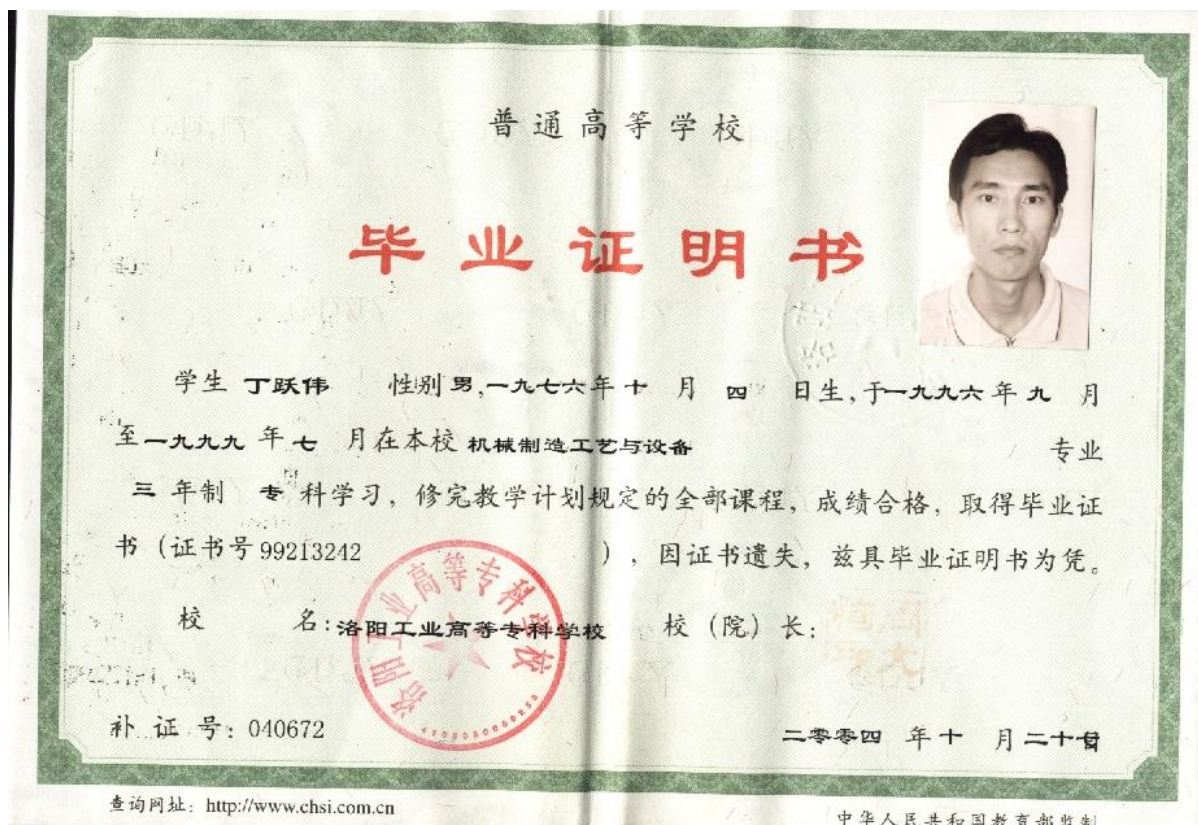 普通高等学校
毕业证明书
学生 丁跃伟 性别 男,一九七六年 十 月 四 日生,于一九九六 年 九 月
至一九九九 年 七 月在本校 机械制造工艺与设备 专业
三 年制 专 科学习,修完教学计划规定的全部课程,成绩合格,取得毕业证
书(证书号 99213242 ),因证书遗失,兹具毕业证明书为凭。
校 名:洛阳工业高等专科学校 校(院)长:
洛阳工业高等专科学校
补 证 号:040672
二零零四 年 十 月 二十日
查询网址:http://www.chsi.com.cn
中华人民共和国教育部监制